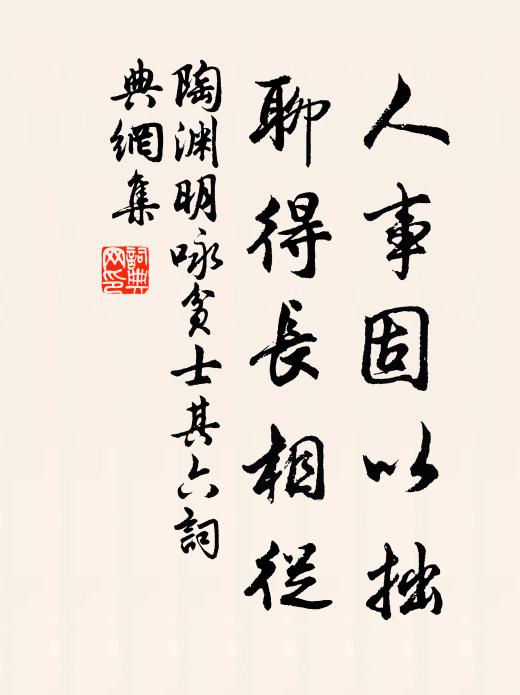 人事固以拙
聊得長相從
陶渊明咏貧士其六詞
典網集
詞典
网印